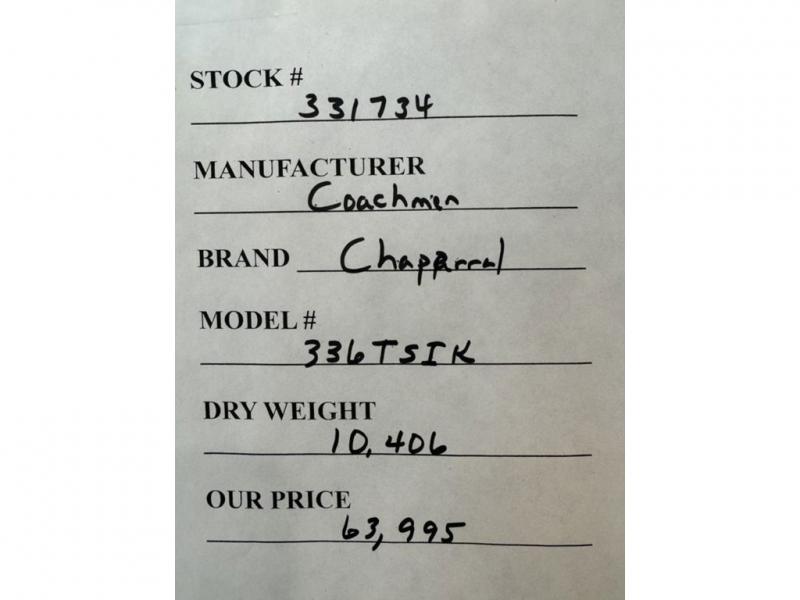 STOCK #
331734
MANUFACTURER
Coachmen
BRAND Chaparral
MODEL #
336TSIK
DRY WEIGHT
10,406
OUR PRICE
63,995